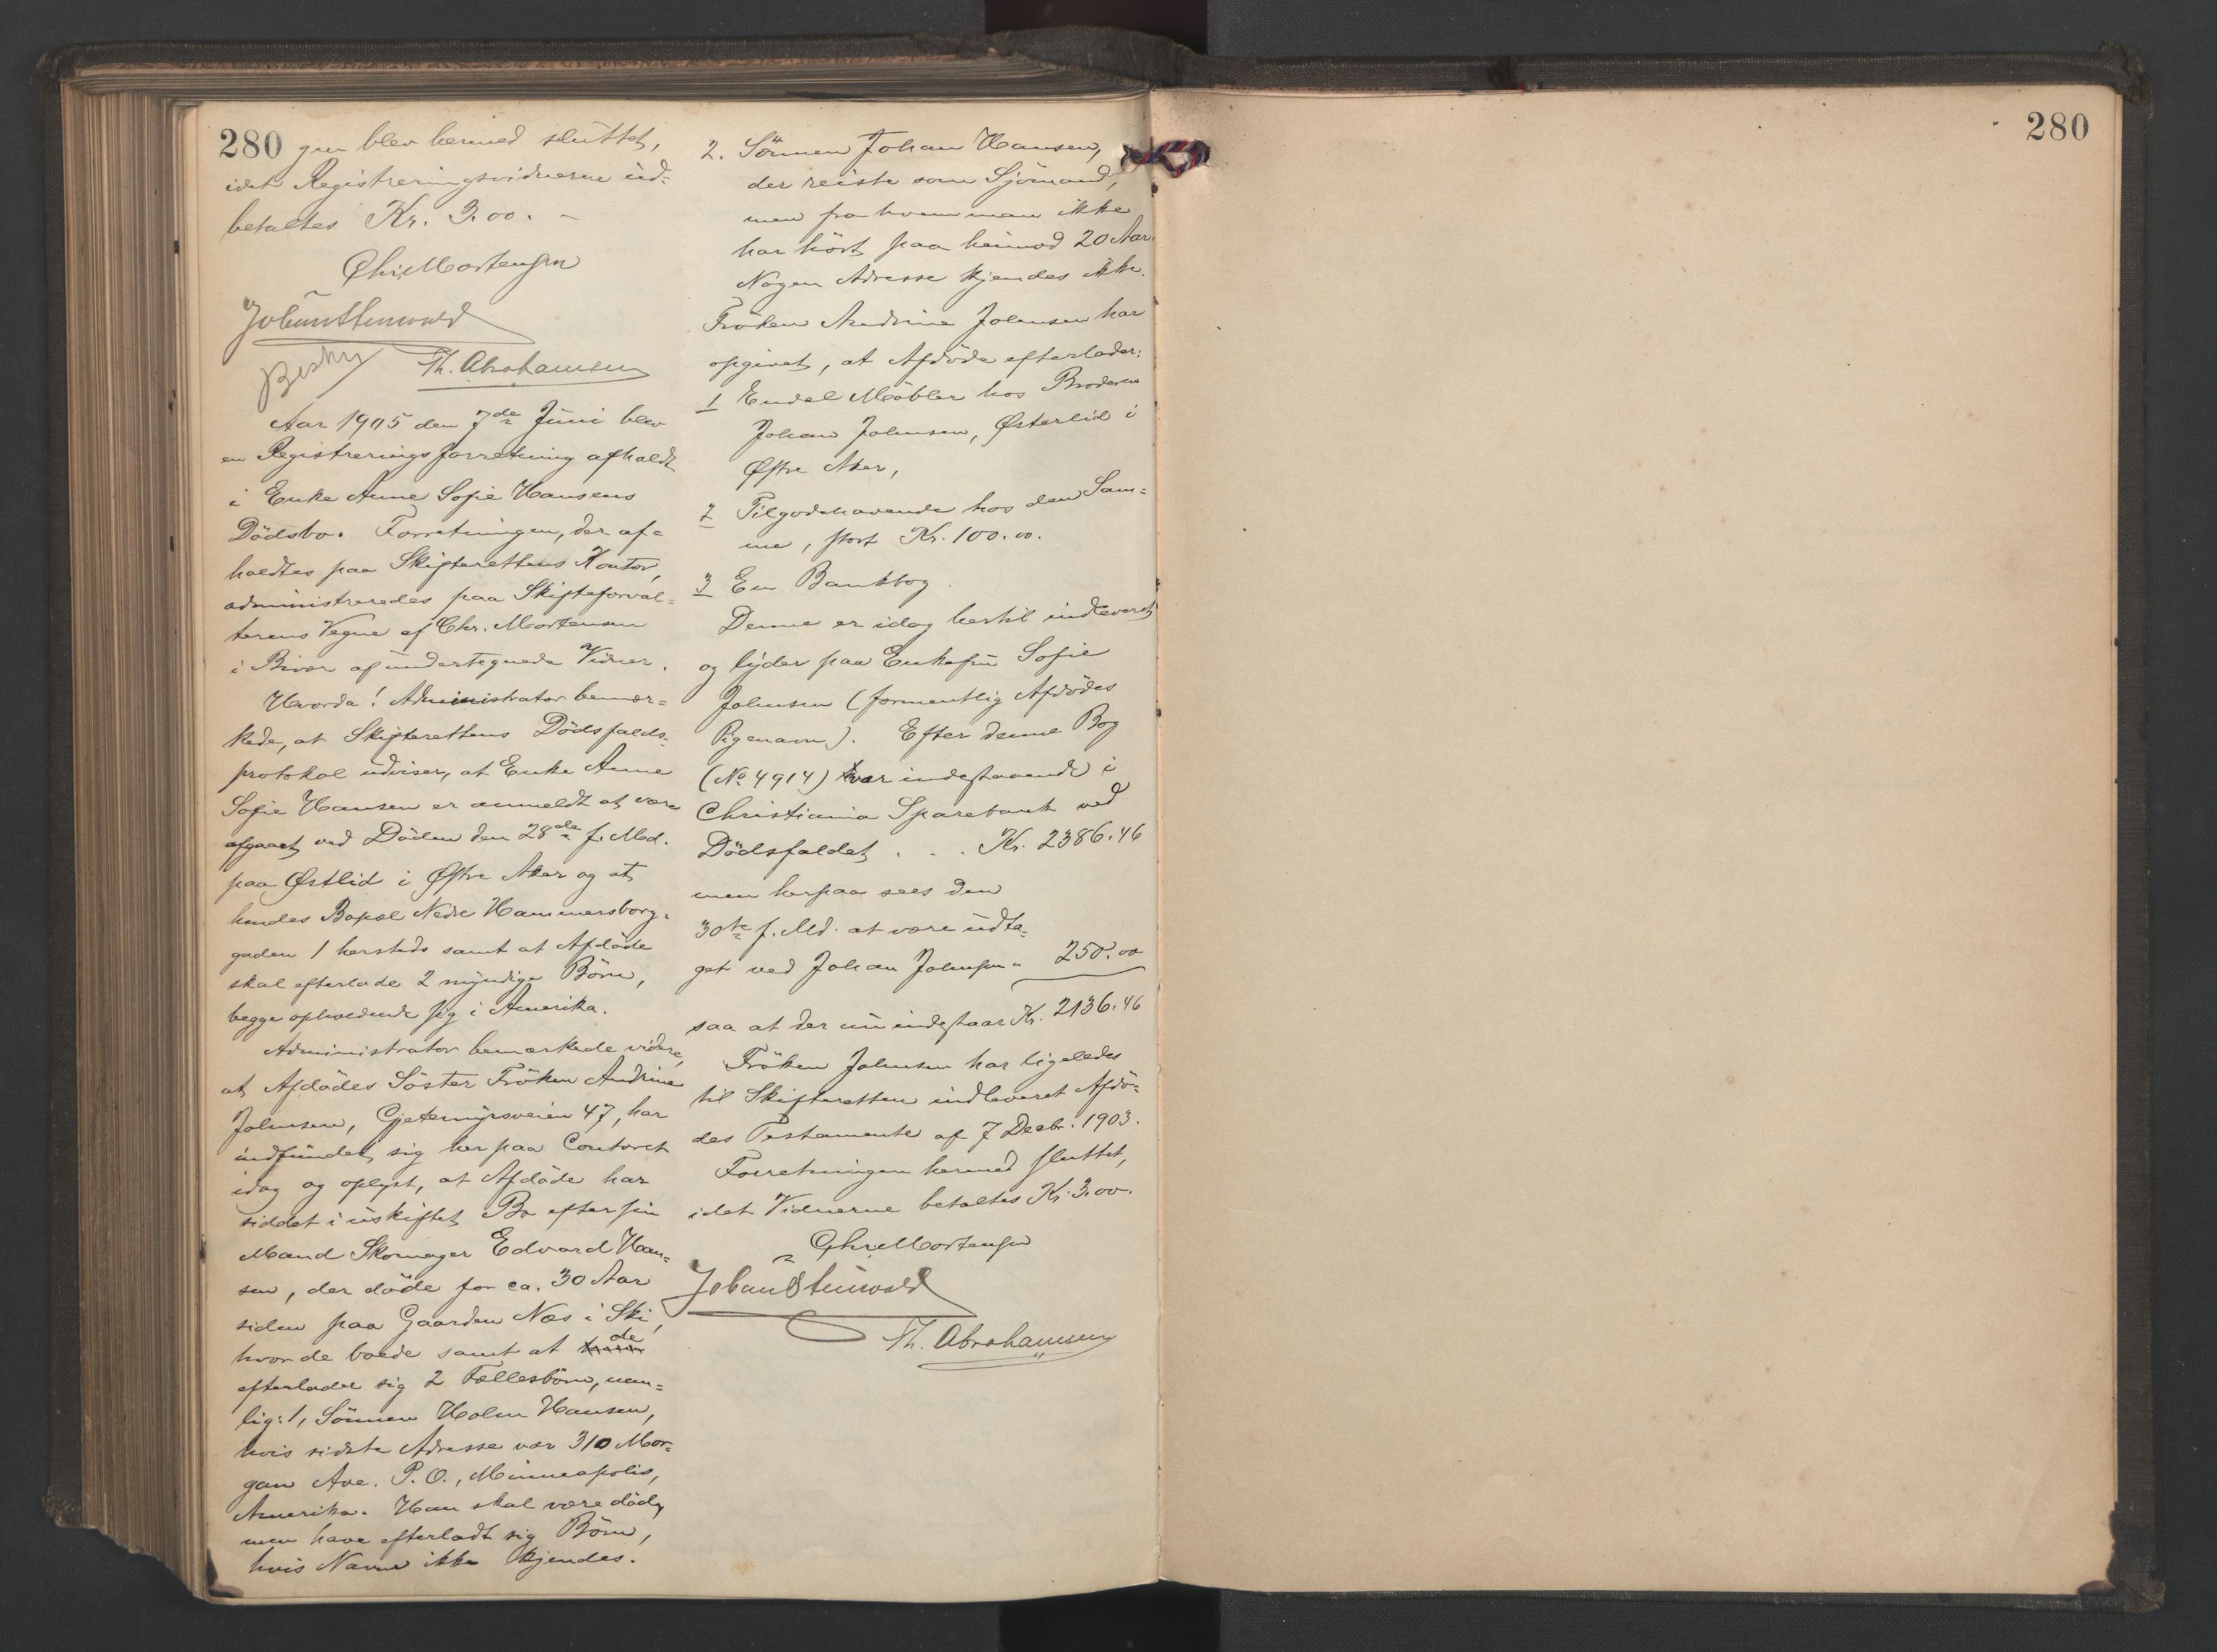 280 gen blev hermed sluttet,
idet Registreringsvidnerne ud=
betaltes Kr. 3.00. –
Chr. Mortensen
Johan Stenwald
Th. Abrahamsen
Aar 1905 den 7de Juni blev
en Registreringsforretning afholdt
i Enke Anne Sofie Hansens
Dödsbo. Forretningen, der af=
holdtes paa Skifterettens Kontor,
administreredes paa Skifteforval=
terens Vegne af Chr. Mortensen
i Bivær af undertegnede Vidner.
Hvorda! Administrator bemær=
kede, at Skifterettens Dödsfalds=
protokol udviser, at Enke Anne
Sofie Hansen er anmeldt at være
afgaaet ved Döden den 28de f. Md.
paa Østlid i Østre Aker og at
hendes Bopæl Nedre Hammersborg=
gaden 1 hersteds samt at Afdöde
skal efterlade 2 myndige Börn,
begge opholdende sig i Amerika.
Administrator bemærkede videre,
at Afdödes Söster Fröken Andrine
Johnsen, Gjetemyrsveien 47, har
indfundet sig her paa Contoret
idag og oplyst, at Afdöde har
siddet i uskiftet Bo efter sin
Mand Skomager Edvard Han=
sen, der döde for ca. 30 Aar
siden paa Gaarden Næs i Ski,
hvor de boede samt at de
efterlader sig 2 Fællesbörn, nem=
lig: 1, Sönnen Holm Hansen,
hvis sidste Adresse var 310 Mor=
gan Ave. P.O., Minneapolis,
Amerika. Han skal være död,
men have efterladt sig Börn,
hvis Navne ikke kjendes.
2. Sönnen Johan Hansen,
der reiste som Sjömand,
men fra hvem man ikke
har hört paa henimod 20 Aar.
Nogen Adresse kjendes ikke.
Fröken Andrine Johnsen har
opgivet, at Afdöde efterlader:
1 Endel Möbler hos Broderen
Johan Johnsen, Østerlid i
Østre Aker,
2 Tilgodehavende hos den Sam=
me, stort Kr. 100.00.
3 En Bankbog.
Denne er idag hertil indleveret
og lyder paa Enkefru Sofie
Johnsen (formentlig Afdödes
Pigenavn). Efter denne Bog
(No 4914) var indestaaende i
Christiania Sparebank ved
Dödsfaldet . . . Kr. 2386.46
men herpaa sees den
30te f. Md. at være udta=
get ved Johan Johnsen " 250.00
saa at der nu indestaar Kr. 2136.46
Fröken Johnsen har ligeledes
til Skifteretten indleveret Afdö=
des Testamente af 7 Decbr. 1903.
Forretningen hermed sluttet,
idet Vidnerne betaltes Kr. 3.00.
Chr. Mortensen
Johan Stenwald
Th. Abrahamsen
280